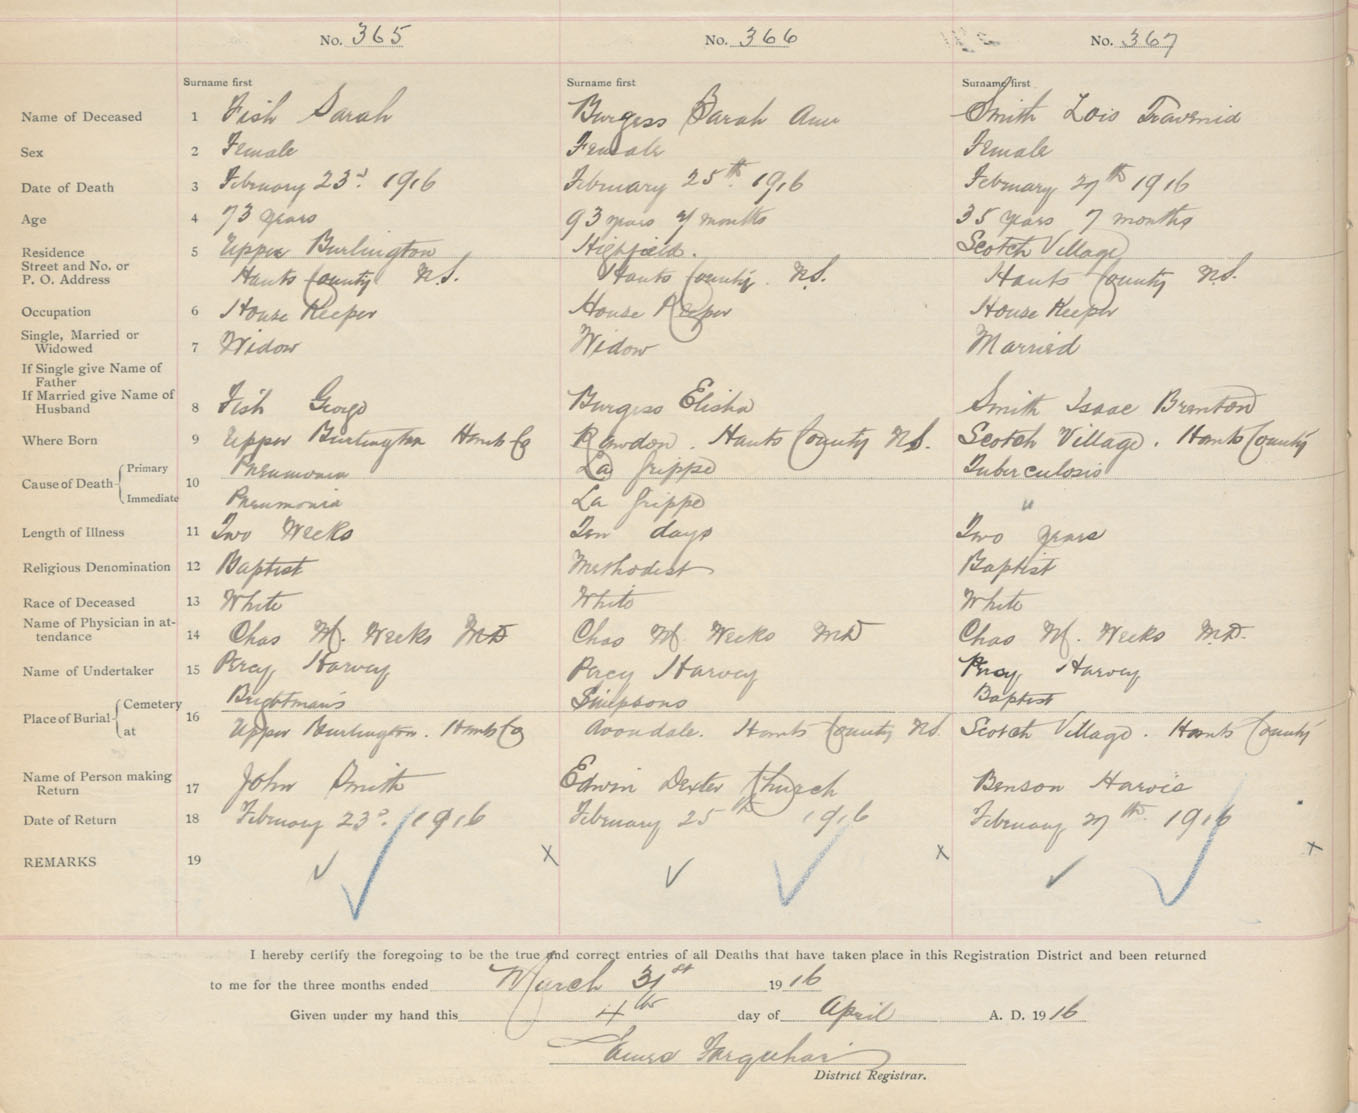 No. 365 No. 366 No. 367
Surname first Surname first Surname first
Name of Deceased 1 Fish Sarah Burgess Sarah Ann Smith Lois
Sex 2 Female Female Female
Date of Death 3 February 23d. 1916 February 25th. 1916 February 27th 1916
Age 4 73 years 93 years months 35 years 7 months
Residence 5 Upper Burlington Highfield. Scotch Village
Street and No. or
P. O. Address Hants County N.S. Hants County. N.S. Hants County N.S.
Occupation 6 House Keeper House Keeper House Keeper
Single, Married or
Widowed 7 Widow Widow Married
If Single give Name of
Father
If Married give Name of
Husband 8 Fish George Burgess Elisha Smith Isaac Brenton
Where Born 9 Upper Burlington Hants Co Rawdon. Hants County N.S. Scotch Village. Hants County
Cause of Death Primary 10 Pneumonia La Grippe Tuberculosis
Immediate Pneumonia La Grippe "
Length of Illness 11 Two Weeks Ten days Two years
Religious Denomination 12 Baptist Methodist Baptist
Race of Deceased 13 White White White
Name of Physician in at-
tendance 14 Chas W. Weeks MD Chas W Weeks MD Chas W. Weeks M.D.
Name of Undertaker 15 Percy Harvey Percy Harvey Percy Harvey
Place of Burial Cemetery 16 Brightman's Simpsons Baptist
at Upper Burlington. Hants Co Avondale. Hants County N.S. Scotch Village. Hants County
Name of Person making
Return 17 John Smith Edwin Dexter Church Benson Harvie
Date of Return 18 February 23d. 1916 February 25th 1916 February 27th. 1916
REMARKS 19 ✓ x ✓ x ✓ x
I hereby certify the foregoing to be the true and correct entries of all Deaths that have taken place in this Registration District and been returned
to me for the three months ended March 31st 1916
Given under my hand this 4th day of April A. D. 1916
James Farquhar
District Registrar.